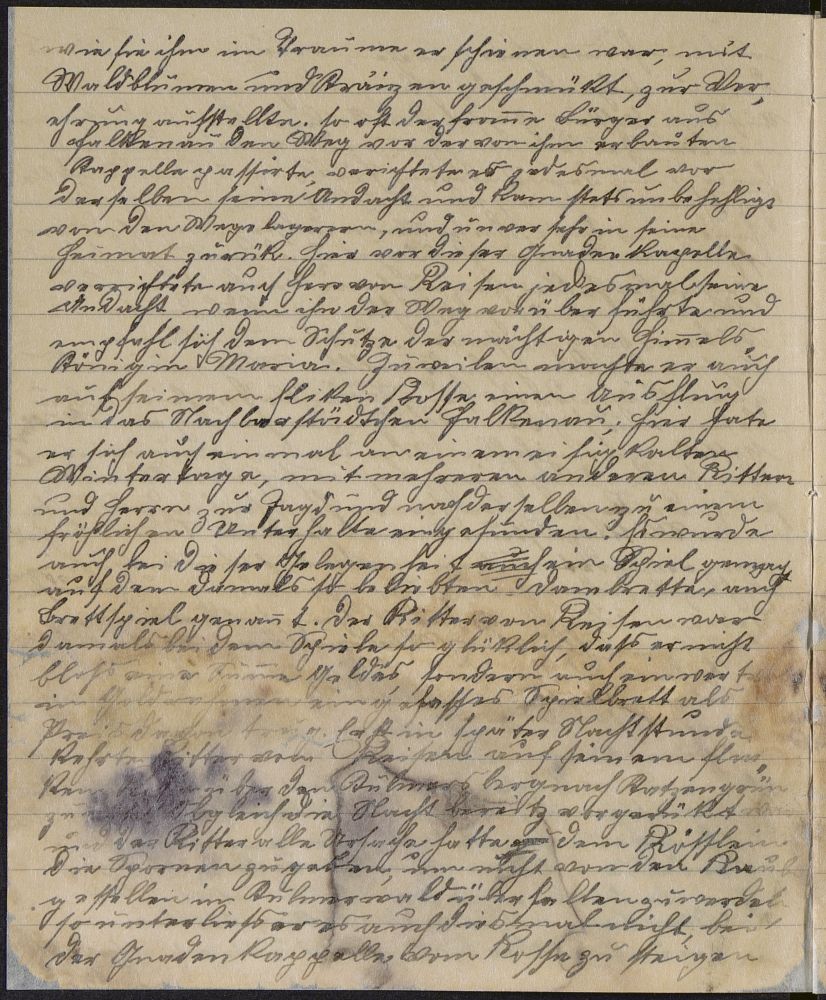 wie sie ihm im Traume erschienen war, mit
Waldblumen und Kränzen geschmükt, zur Ver-
ehrung aufstellte. so oft der from̄e Bürger aus
Falkenau den Weg vor der von ihm erbauten
Kappelle passirte, verichtete er jedesmal vor
derselben seine Andacht und kam stets unbehelligt
von den Wegelagerern, und unversehr in seine
Heimat zurük. Hier vor dieser Gnadenkapelle
verrichtete auch Herr von Reisen jedesmal seine
Andacht wenn ihn der Weg vorüber führte und
empfahl sich dem Schutze der mächtigen Him̄els-
königin Maria. Zuweilen machte er auch
auf seinem fliken Rosse einen Ausflug
in das Nachbarstädtchen Falkenau. Hier hate
er sich auch einmal an einem eisig kalten
Wintertage, mit mehreren anderen Rittern
und Herrn zur Jagd und nach derselben zu einem
fröhlichen Unterhalte eingefunden. Es wurde
auch bei dieser Gelegenheit auch ein Spiel gemacht
auf dem damals so beliebten Dambrette, auch
Brettspiel genan̄t. Der Ritter von Reisen war
damals bei dem Spiele so glüklich, dass er nicht
bloss eine Sum̄e Geldes, sondern auch ein wert
im Goldrahmen eingefasstes Spielbrett als
Preis davon trug. Erst in später Nachtstunde
kehrte Ritter von Reisen auf seinem flin-
ken über den Kulmersberg nach Katzengrün
zurük. Obgleich die Nacht bereitz vorgerükt
und der Ritter alle Ursache hatte dem Rösslein
die Spornen zugeben, um nicht von den Raub
gesellen in Kulmerwald überfallen zu werden
so unterliess er es auch diesmal nicht, bei
der Gnadenkappelle vom Rosse zu steigen